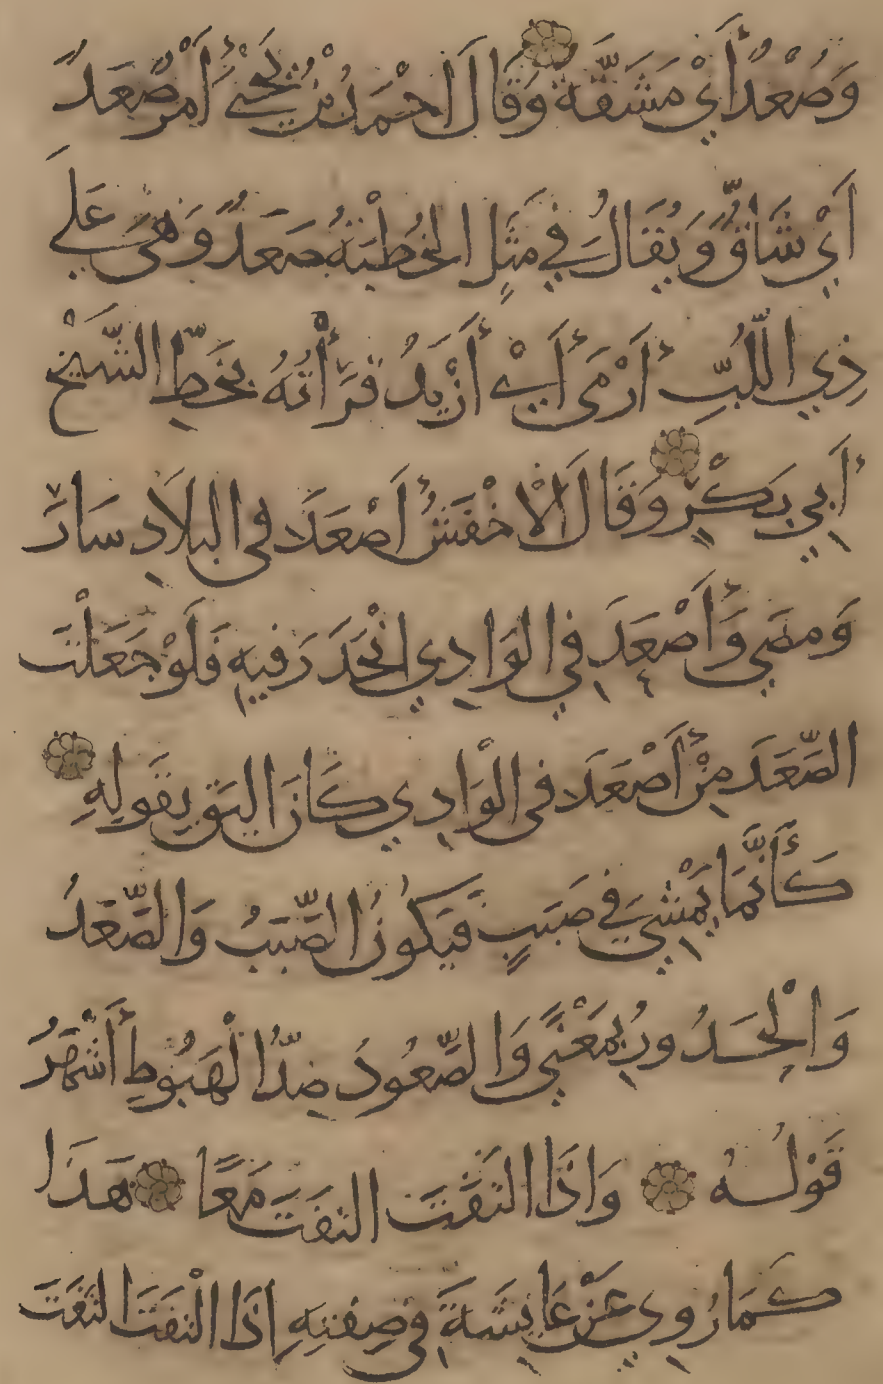 وَصُعْدٌ أَيْ مَشَقَّةٌ وَقَالَ احْمَدُ بْنُ يَحْيَى أَمْرٌ صَعَدٌ
أَيْ شَاقٌّ وَيُقَالُ فِي مَثَلِ الخُطْبَةُ صَعَدٌ وَهِيَ عَلَى
ذِي اللُّبِّ أَرْمَى أَيْ أَزْيَدُ قَرَأْتُهُ بِخَطِّ الشَّيْخِ
أَبِي بَكْرٍ وَقَالَ الْاخْفَشُ أَصْعَدَ فى البلَادِ سَارَ
وَمضَى وَأَصْعَدَ فِي الوَادِي انْحَدَرَ فِيهِ فَلَوْ جَعَلْتَ
الصَّعَدَ مِنْ أَصْعَدَ فى الْوَادِي كَانَ اليَقَ بِقَولِهِ
كَأَنَّمَا يَمْشِي فِي صَبَبٍ فَيَكُونُ الصَّبَبُ وَالصَّعَدُ
وَالْحَدُورُ بِمَعْنًى وَالصَّعُودُ ضِدُّ الْهَبُوطِ أَشْهَرُ
قَوْلُهُ وَاذَا الْتَفَتَ التفَتَ مَعًا هَذَا
كَمَا رُوِي عَنْ عَايِشَةَ فِي صِفَتِهِ إِذَا الْتَفَتَ التَفَتَ